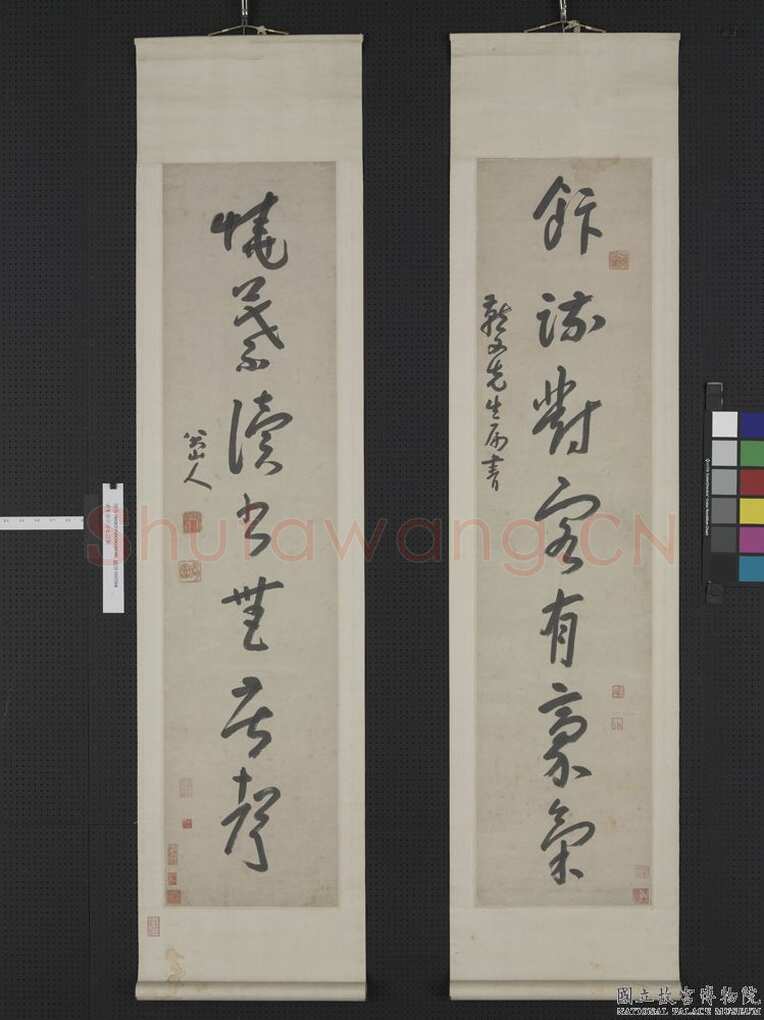 飰疏對客有豪氣
先生屬書
燒葉讀書無苦聲
八大山人
Shufawang.CN
國立故宮博物院
NATIONAL PALACE MUSEUM